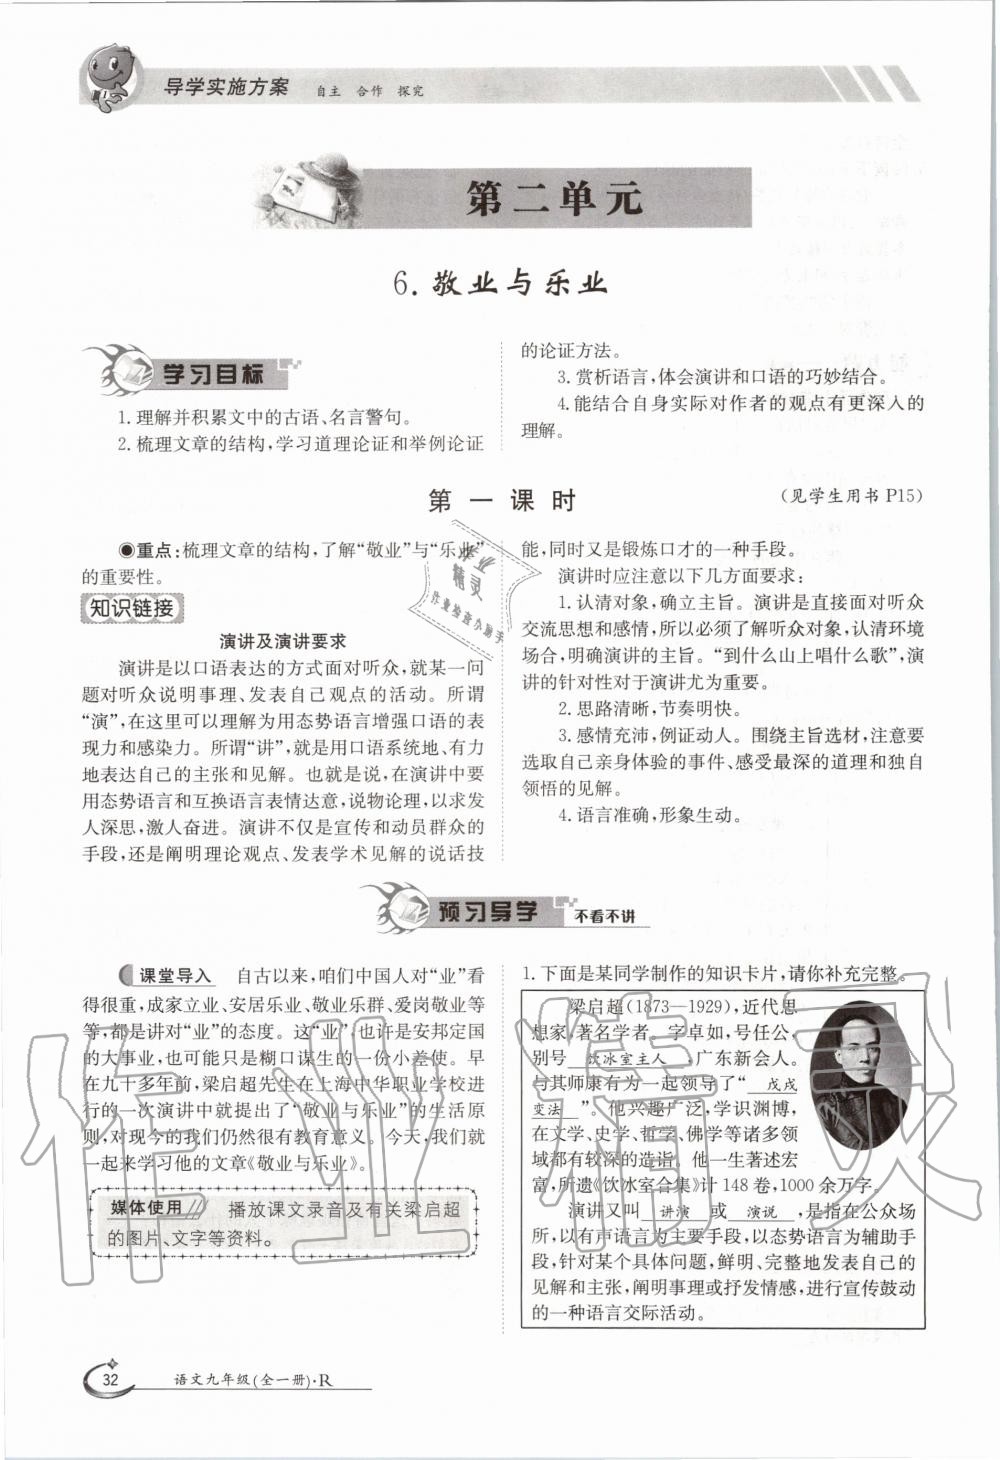 导学实施方案 自主 合作 探究
第二单元
6. 敬业与乐业
学习目标
1. 理解并积累文中的古语、名言警句。
2. 梳理文章的结构,学习道理论证和举例论证
的论证方法。
3. 赏析语言,体会演讲和口语的巧妙结合。
4. 能结合自身实际对作者的观点有更深入的
理解。
第一课时
(见学生用书 P15)
●重点:梳理文章的结构,了解“敬业”与“乐业”
的重要性。
知识链接
演讲及演讲要求
演讲是以口语表达的方式面对听众,就某一问
题对听众说明事理、发表自己观点的活动。所谓
“演”,在这里可以理解为用态势语言增强口语的表
现力和感染力。所谓“讲”,就是用口语系统地、有力
地表达自己的主张和见解。也就是说,在演讲中要
用态势语言和互换语言表情达意,说物论理,以求发
人深思,激人奋进。演讲不仅是宣传和动员群众的
手段,还是阐明理论观点、发表学术见解的说话技
能,同时又是锻炼口才的一种手段。
演讲时应注意以下几方面要求:
1. 认清对象,确立主旨。演讲是直接面对听众
交流思想和感情,所以必须了解听众对象,认清环境
场合,明确演讲的主旨。“到什么山上唱什么歌”,演
讲的针对性对于演讲尤为重要。
2. 思路清晰,节奏明快。
3. 感情充沛,例证动人。围绕主旨选材,注意要
选取自己亲身体验的事件、感受最深的道理和独自
领悟的见解。
4. 语言准确,形象生动。
作业
精灵
作业检查小助手
预习导学 不看不讲
课堂导入 自古以来,咱们中国人对“业”看
得很重,成家立业、安居乐业、敬业乐群、爱岗敬业等
等,都是讲对“业”的态度。这“业”,也许是安邦定国
的大事业,也可能只是糊口谋生的一份小差使。早
在九十多年前,梁启超先生在上海中华职业学校进
行的一次演讲中就提出了“敬业与乐业”的生活原
则,对现今的我们仍然很有教育意义。今天,我们就
一起来学习他的文章《敬业与乐业》。
媒体使用 播放课文录音及有关梁启超
的图片、文字等资料。
1. 下面是某同学制作的知识卡片,请你补充完整。
梁启超(1873—1929),近代思
想家,著名学者,字卓如,号任公,
别号 饮冰室主人 ,广东新会人。
与其师康有为一起领导了“ 戊戌
变法 ”。他兴趣广泛,学识渊博,
在文学、史学、哲学、佛学等诸多领
域都有较深的造诣。他一生著述宏
富,所遗《饮冰室合集》计 148 卷,1000 余万字。
演讲又叫 讲演 或 演说 ,是指在公众场
所,以有声语言为主要手段,以态势语言为辅助手
段,针对某个具体问题,鲜明、完整地发表自己的
见解和主张,阐明事理或抒发情感,进行宣传鼓动
的一种语言交际活动。
作业精灵
32 语文九年级(全一册)·R